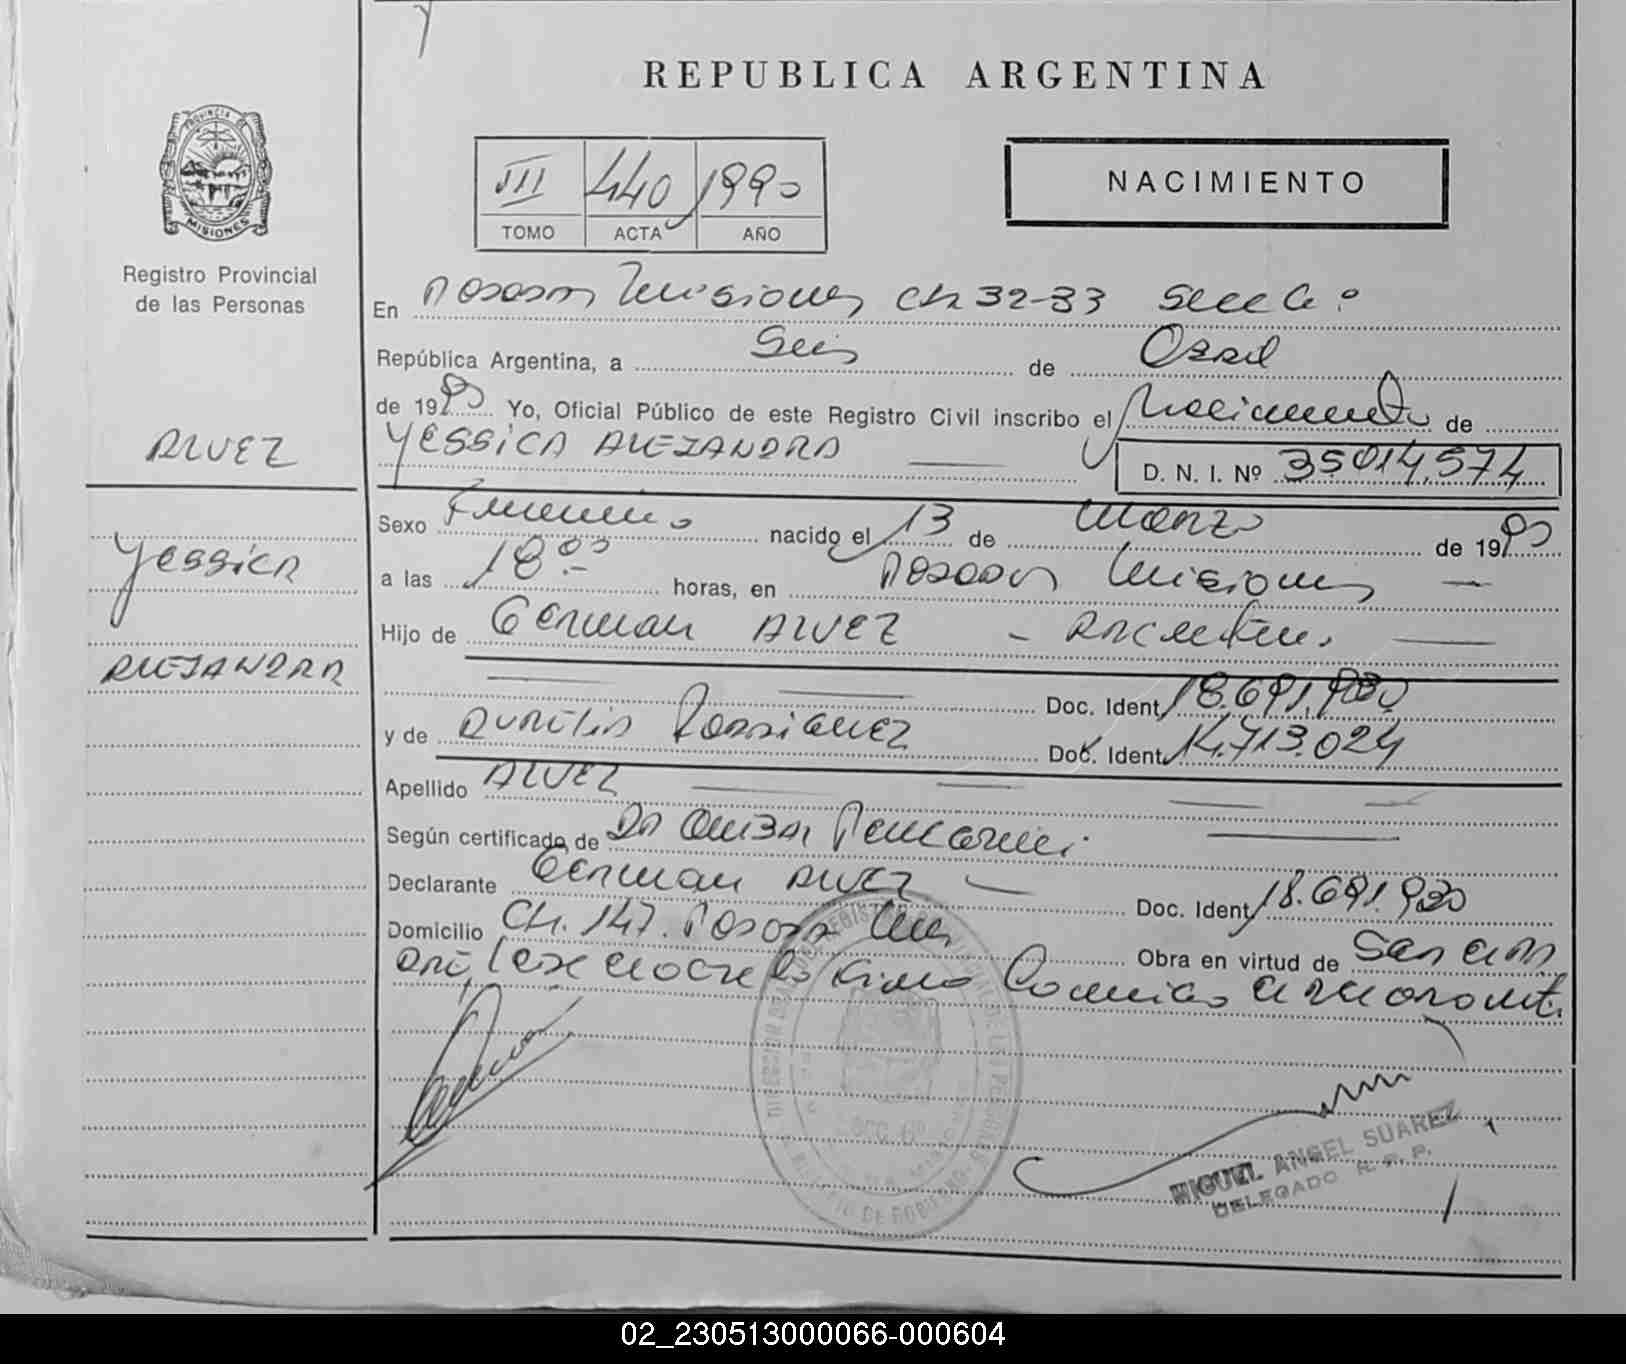 REPUBLICA ARGENTINA
PROVINCIA DE
MISIONES
Registro Provincial
de las Personas
III 440 1990
TOMO ACTA AÑO
NACIMIENTO
En Posadas Misiones Ch 32-33
República Argentina, a Seis de Abril
de 1990 Yo, Oficial Público de este Registro Civil inscribo el Nacimiento de
ALVEZ
YESSICA ALEJANDRA
D. N. I. Nº 35.014.574
Sexo Femenino nacido el 13 de Marzo de 1990
Yessica
a las 18.00 horas, en Posadas Misiones
Hijo de German ALVEZ - Argentino
ALEJANDRA
Doc. Ident. 18.691.930
y de Aurelia Rodriguez Doc. Ident. 14.713.024
Apellido ALVEZ
Según certificado de Dr
Declarante German Alvez Doc. Ident. 18.691.930
Domicilio Ch. 147. Posadas Mnes Obra en virtud de
MIGUEL ANGEL SUAREZ
DELEGADO R. P. P.
02_230513000066-000604